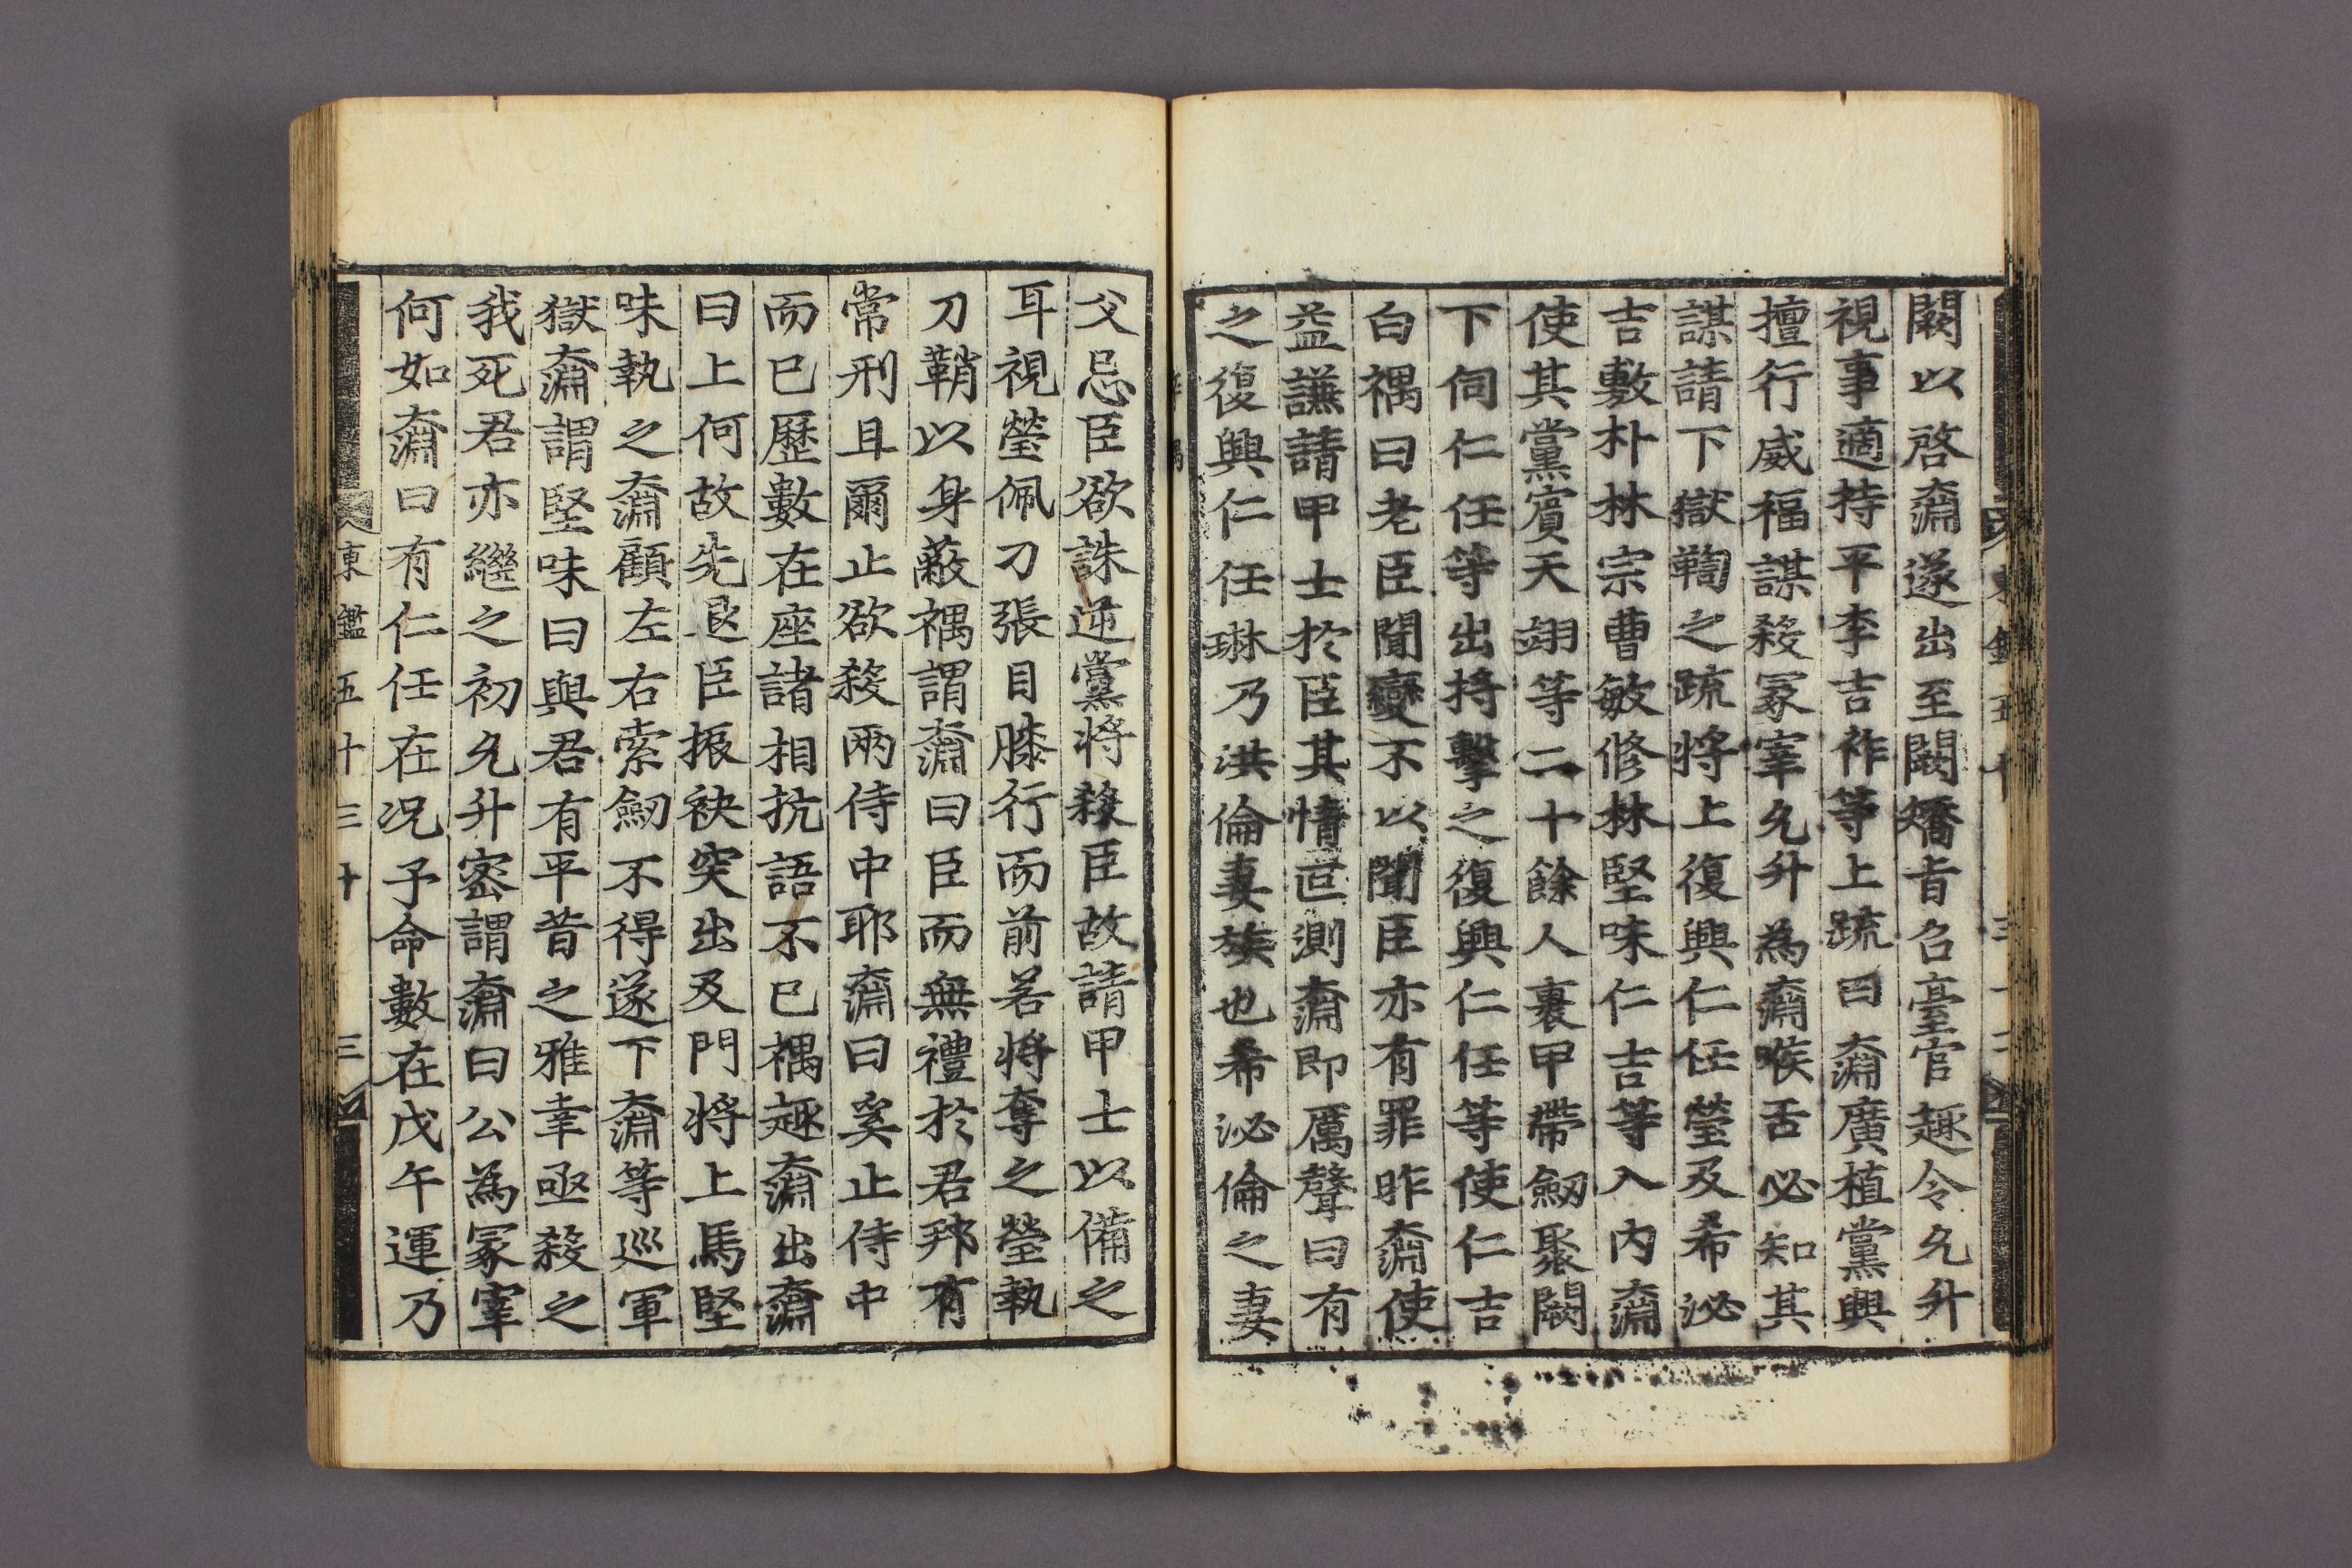 闕以啓奫遂出至闕矯旨召臺官趣令允升
視事適持平李吉祚等上䟽曰奫廣植黨與
擅行威福謀殺冢宰允升為奫喉舌必知其
謀請下獄鞫之䟽將上復興仁任瑩及希泌
吉敷朴林宗曹敏修林堅味仁吉等入內奫
使其黨賔天翊等二十餘人裹甲帶劒聚闕
下伺仁任等出將擊之復興仁任等使仁吉
白禑曰老臣聞變不以聞臣亦有罪昨奫使
益謙請甲士於臣其情叵測奫即厲聲曰有
之復興仁任琳乃洪倫妻族也希泌倫之妻
父忌臣欲誅逆黨將殺臣故請甲士以備之
耳視瑩佩刀張目膝行而前若將奪之瑩執
刀鞘以身蔽禑謂奫曰臣而無禮於君邦有
常刑且爾止欲殺兩侍中耶奫曰奚止侍中
而已歷數在座諸相抗語不已禑趣奫出奫
曰上何故先退臣振袂突出及門將上馬堅
味執之奫顧左右索劒不得遂下奫等巡軍
獄奫謂堅味曰與君有平昔之雅幸亟殺之
我死君亦繼之初允升密謂奫曰公為冢宰
何如奫曰有仁任在况予命數在戊午運乃
東鑑五十三 十三